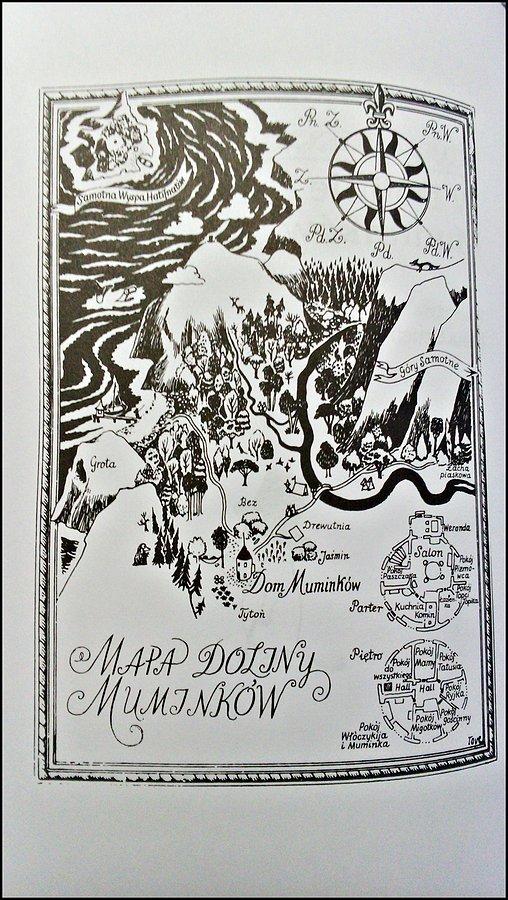 Pn. Z.
Pn. W.
Z.
W.
Pd. Z.
Pd.
Pd. W.
Samotna Wyspa Hatifnatów
Góry Samotne
Łacha
piaskowa
Grota
Bez
Drewutnia
Jaśmin
Dom Muminków
Tytoń
Weranda
Salon
Pokój
Paszczaka
Pokój
Piżmo-
wca
Pokój
Łazien-
ka
Kuchnia
Komin
Parter
Piętro
Pokój
do
wszystkiego
Pokój
Mamy
Pokój
Tatusia
Hall
Hall
Pokój
Ryjka
Pokój
gościnny
Pokój
Migotków
Pokój
Włóczykija
i Muminka
MAPA DOLINY
MUMINKÓW
Tove